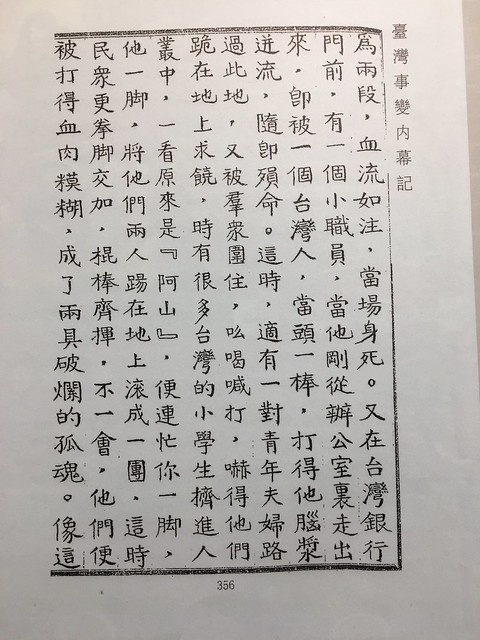 臺灣事變內幕記
為兩段，血流如注，當場身死。又在台灣銀行
門前，有一個小職員，當他剛從辦公室裏走出
來，卽被一個台灣人，當頭一棒，打得他腦漿
迸流，隨卽殞命。這時，適有一對青年夫婦路
過此地，又被羣衆圍住，吆喝喊打，嚇得他們
跪在地上求饒，時有很多台灣的小學生擠進人
叢中，一看原來是『阿山』，便連忙你一脚，
他一脚，將他們兩人踢在地上滾成一團，這時
民衆更拳脚交加，棍棒齊揮，不一會，他們便
被打得血肉模糊，成了兩具破爛的孤魂。像這
356